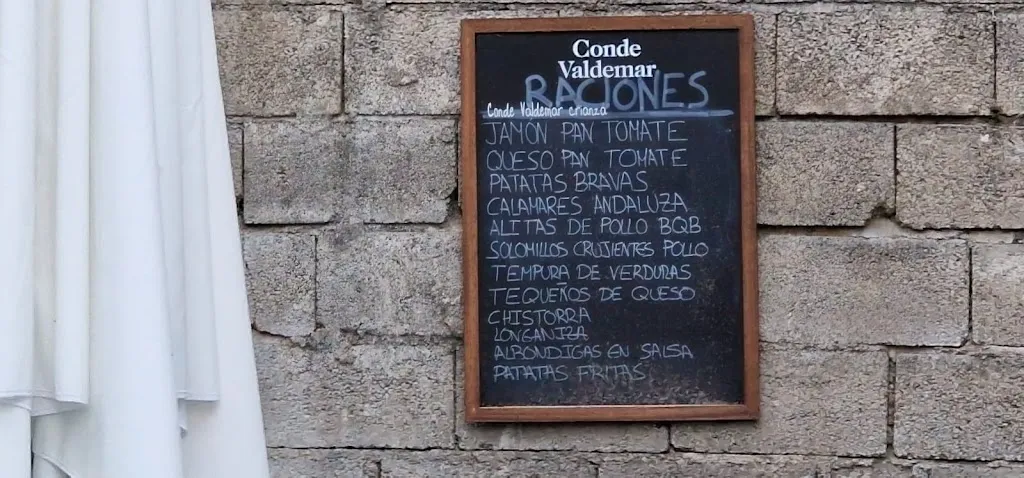 Conde
Valdemar
RACIONES
Conde Valdemar crianza
JAMÓN PAN TOMATE
QUESO PAN TOMATE
PATATAS BRAVAS
CALAMARES ANDALUZA
ALITAS DE POLLO BQB
SOLOMILLOS CRUJIENTES POLLO
TEMPURA DE VERDURAS
TEQUEÑOS DE QUESO
CHISTORRA
LONGANIZA
ALBONDIGAS EN SALSA
PATATAS FRITAS